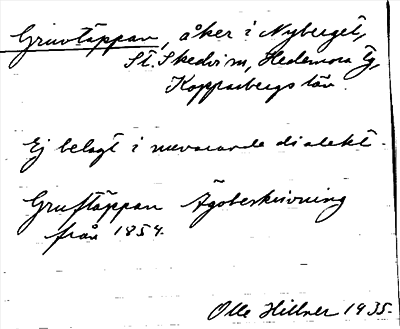 Gruvtäppan, åker i Nyberget,
St. Skedvi sn, Hedemora tg,
Kopparbergs län.
Ej belagt i nuvarande dialekt.
Gruftäppan Ägobeskrivning
från 1854.
Olle Hillner 1935.